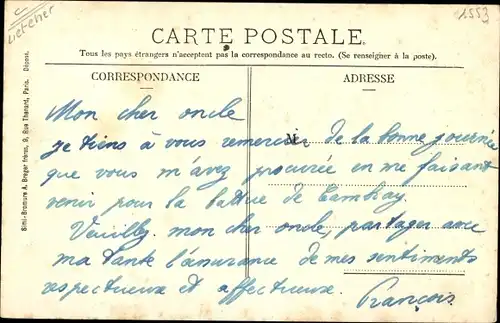 Loir-et-cher
1553
CARTE POSTALE
Tous les pays étrangers n'acceptent pas la correspondance au recto. (Se renseigner à la poste).
CORRESPONDANCE
ADRESSE
Simi-Bromure A. Breger frères, 9, Rue Thénard, Paris. Déposé.
M
Mon cher oncle
Je tiens à vous remercier de la bonne journée
que vous m'avez procurée en me faisant
venir pour la battue de Cambray.
Veuillez mon cher oncle, partager avec
ma tante l'assurance de mes sentiments
respectueux et affectueux.
François